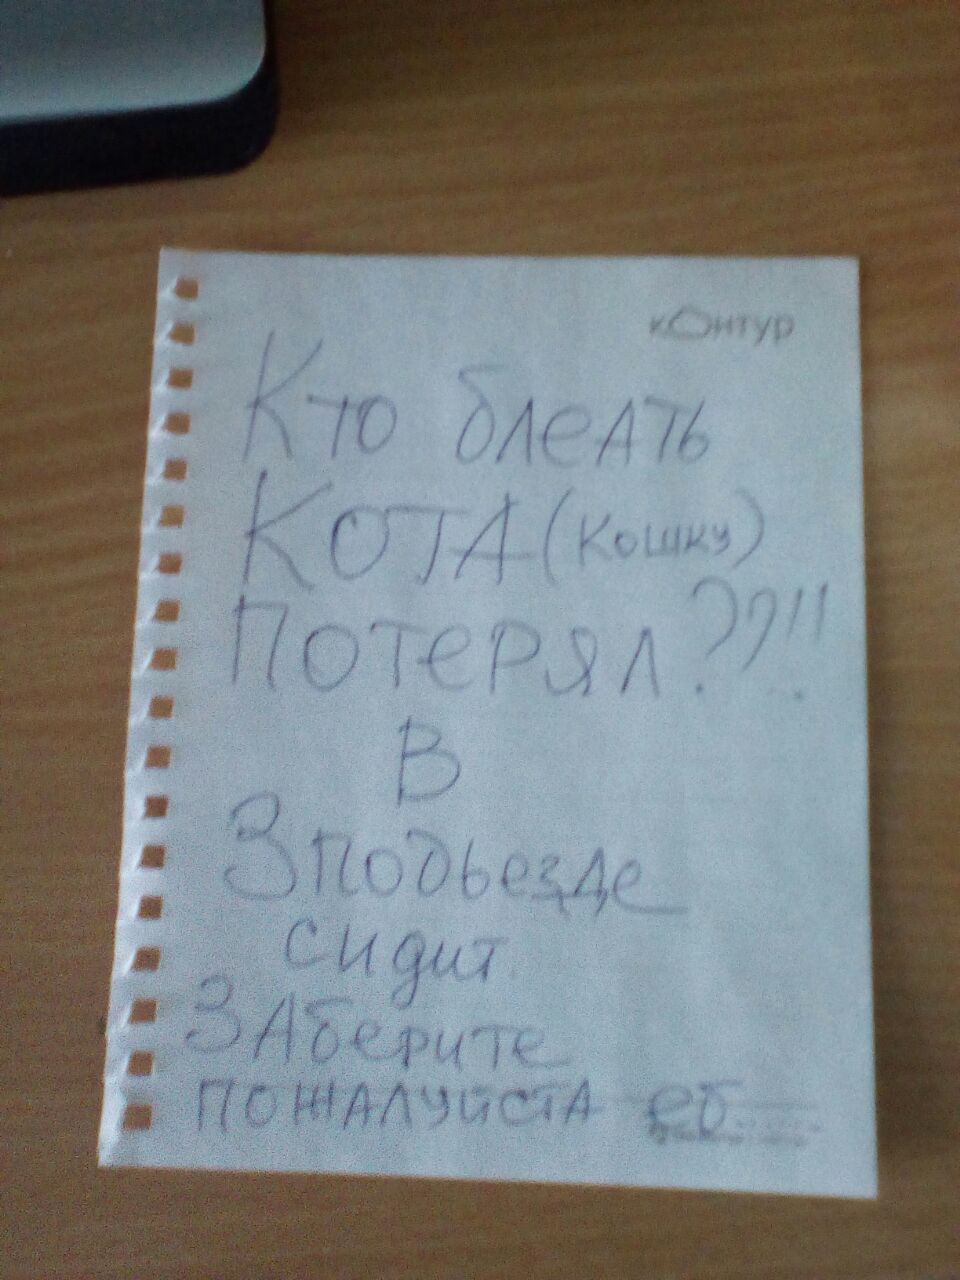 кОнтур
Кто блеать
КОТА (кошку)
Потерял??!!
В
3 подьезде
сидит
ЗАберите
пожалуйста еб........